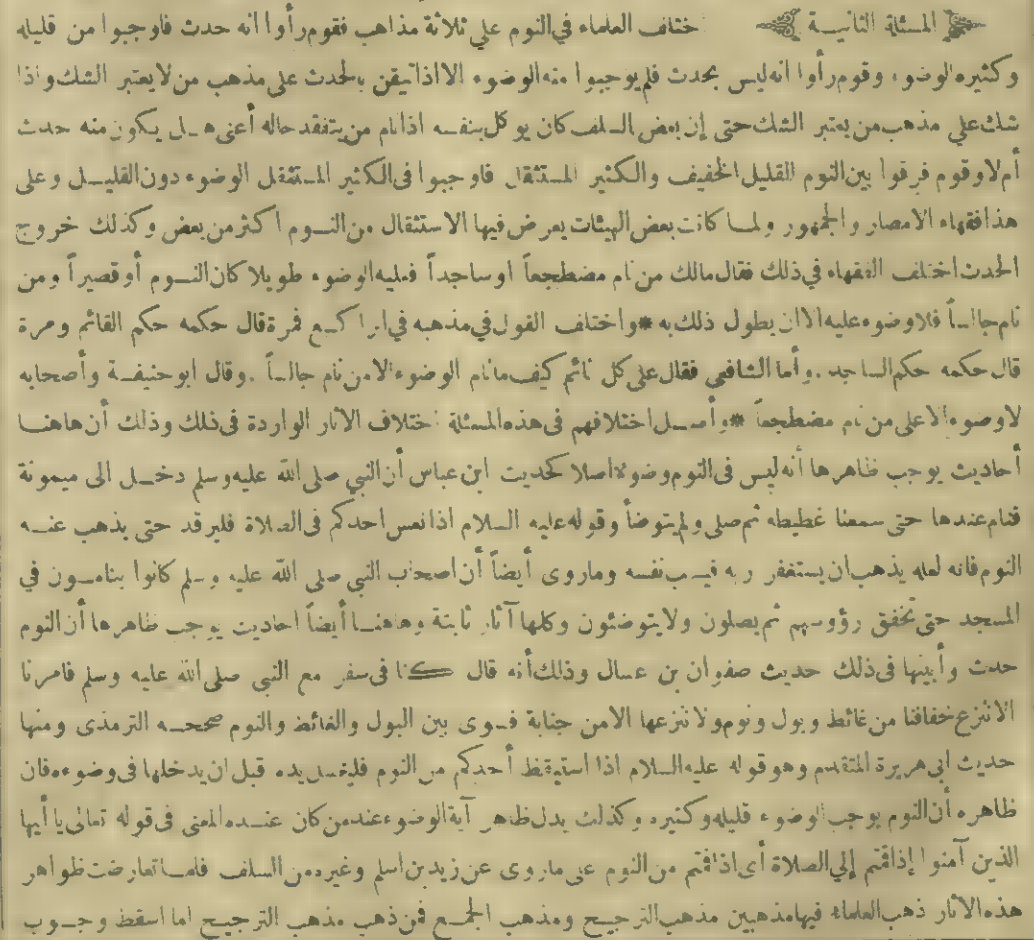 المسئلة الثانية ختلف العلماء في النوم على ثلاثة مذاهب فقوم رأوا انه حدث فاوجبوا من قليله
وكثيره الوضوء وقوم رأوا انه ليس بحدث فلم يوجبوا منه الوضوء الا اذا تيقن بالحدث على مذهب من لا يعتبر الشك واذا
شك على مذهب من يعتبر الشك حتى إن بعض السلف كان يوكل بنفسه اذا نام من يتفقد حاله أعنى هل يكون منه حدث
أم لا وقوم فرقوا بين النوم القليل الخفيف والكثير المستثقل فاوجبوا فى الكثير المستثقل الوضوء دون القليل وعلى
هذا فقهاء الامصار والجمهور ولما كانت بعض الهيئات يعرض فيها الاستثقال من النوم اكثر من بعض وكذلك خروج
الحدث اختلف الفقهاء فى ذلك فقال مالك من نام مضطجعاً اوساجداً فعليه الوضوء طويلا كان النوم أوقصيراً ومن
نام جالساً فلاوضوء عليه الاان يطول ذلك به *واختلف القول في مذهبه في الراكع فمرة قال حكمه حكم القائم ومرة
قال حكمه حكم الساجد .وأما الشافعى فقال على كل نائم كيف مانام الوضوء الامن نام جالساً .وقال ابو حنيفة وأصحابه
لاوضوء الا على من نام مضطجعاً *وأصل اختلافهم فى هذه المسئلة اختلاف الآثار الواردة فى ذلك وذلك أن هاهنا
أحاديث يوجب ظاهرها أنه ليس فى النوم وضوء اصلا كحديث ابن عباس أن النبي صلى الله عليه وسلم دخل الى ميمونة
فنام عندها حتى سمعنا غطيطه ثم صلى ولم يتوضأ وقوله عليه السلام اذا نعس احدكم فى الصلاة فليرقد حتى يذهب عنه
النوم فانه لعله يذهب ان يستغفر ربه فيسب نفسه وماروى أيضاً أن اصحاب النبي صلى الله عليه وسلم كانوا ينامون في
المسجد حتى تخفق رؤوسهم ثم يصلون ولا يتوضئون وكلها آثار ثابتة وهاهنا أيضاً احاديث يوجب ظاهرها أن النوم
حدث وأبينها فى ذلك حديث صفوان بن عسال وذلك أنه قال كنا فى سفر مع النبي صلى الله عليه وسلم فامرنا
الاننزع خفافنا من غائط وبول ونوم ولاننزعها الامن جنابة فسوى بين البول والغائط والنوم صححه الترمذى ومنها
حديث ابى هريرة المتقدم وهو قوله عليه السلام اذا استيقظ أحدكم من النوم فليغسل يده قبل ان يدخلها فى وضوءه فان
ظاهره أن النوم يوجب الوضوء قليله وكثيره وكذلك يدل ظاهر آية الوضوء عند من كان عنده المعنى فى قوله تعالى يا أيها
الذين آمنوا إذا قمتم إلي الصلاة أى اذا قمتم من النوم على ماروى عن زيد بن اسلم وغيره من السلف فلما تعارضت ظواهر
هذه الآثار ذهب العلماء فيها مذهبين مذهب الترجيح ومذهب الجمع فمن ذهب مذهب الترجيح اما اسقط وجوب